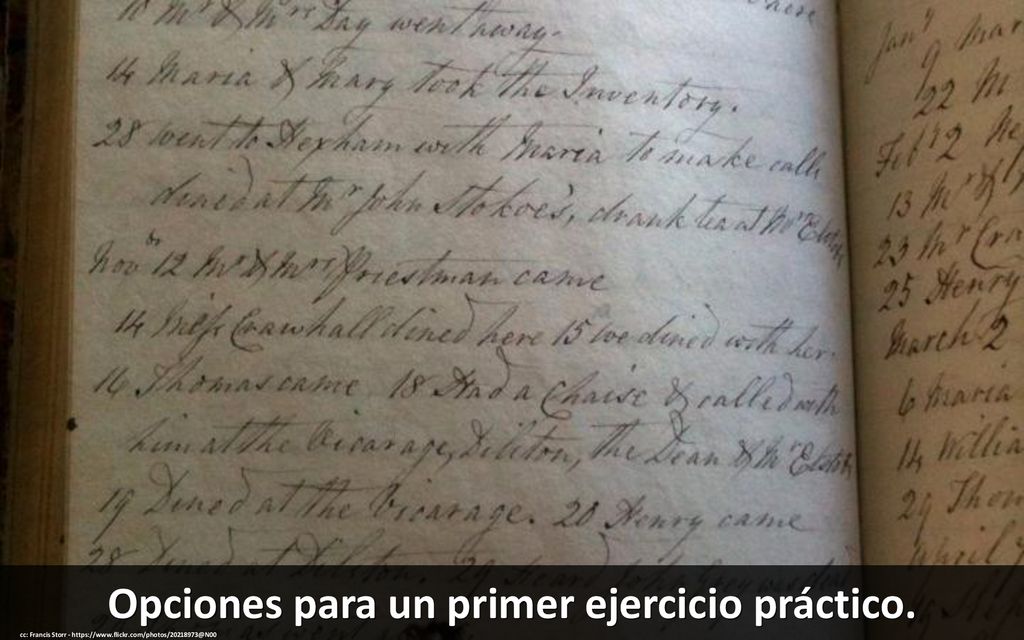 10 Mr & Mrs Day went away.
14 Maria & Mary took the Inventory.
28 went to Hexham with Maria to make calls
dined at Mr John Stokoe's, drank tea at Mr
Novbr 12 Mr & Mrs Priestman came
14 Miss Crawhall dined here 15 we dined with her.
16 Thomas came 18 Had a Chaise & called with
him at the Vicarage, Dilston, the Dean & Mr
19 Dined at the Vicarage. 20 Henry came
28 Dined at Dilston. 29 Heard John
Jany
9 Mar
22 M
Feby 2 He
13 Mr &
23 Mr Cra
25 Henry
March 2
6 Maria
14 Willia
29 Thom
April
Opciones para un primer ejercicio práctico.
cc: Francis Storr - https://www.flickr.com/photos/20218973@N00